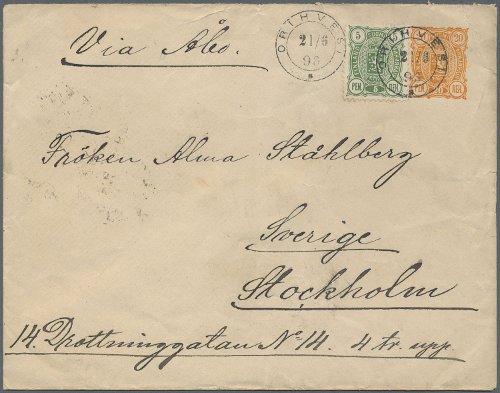 Via Åbo.
ORIHVESI
21/6
93
5
PEN
5
ORIHVESI
21/6
93
20
PEN
KOP.
Fröken Alma Ståhlberg
Sverige
Stockholm
14. Drottninggatan No 14. 4 tr. upp.